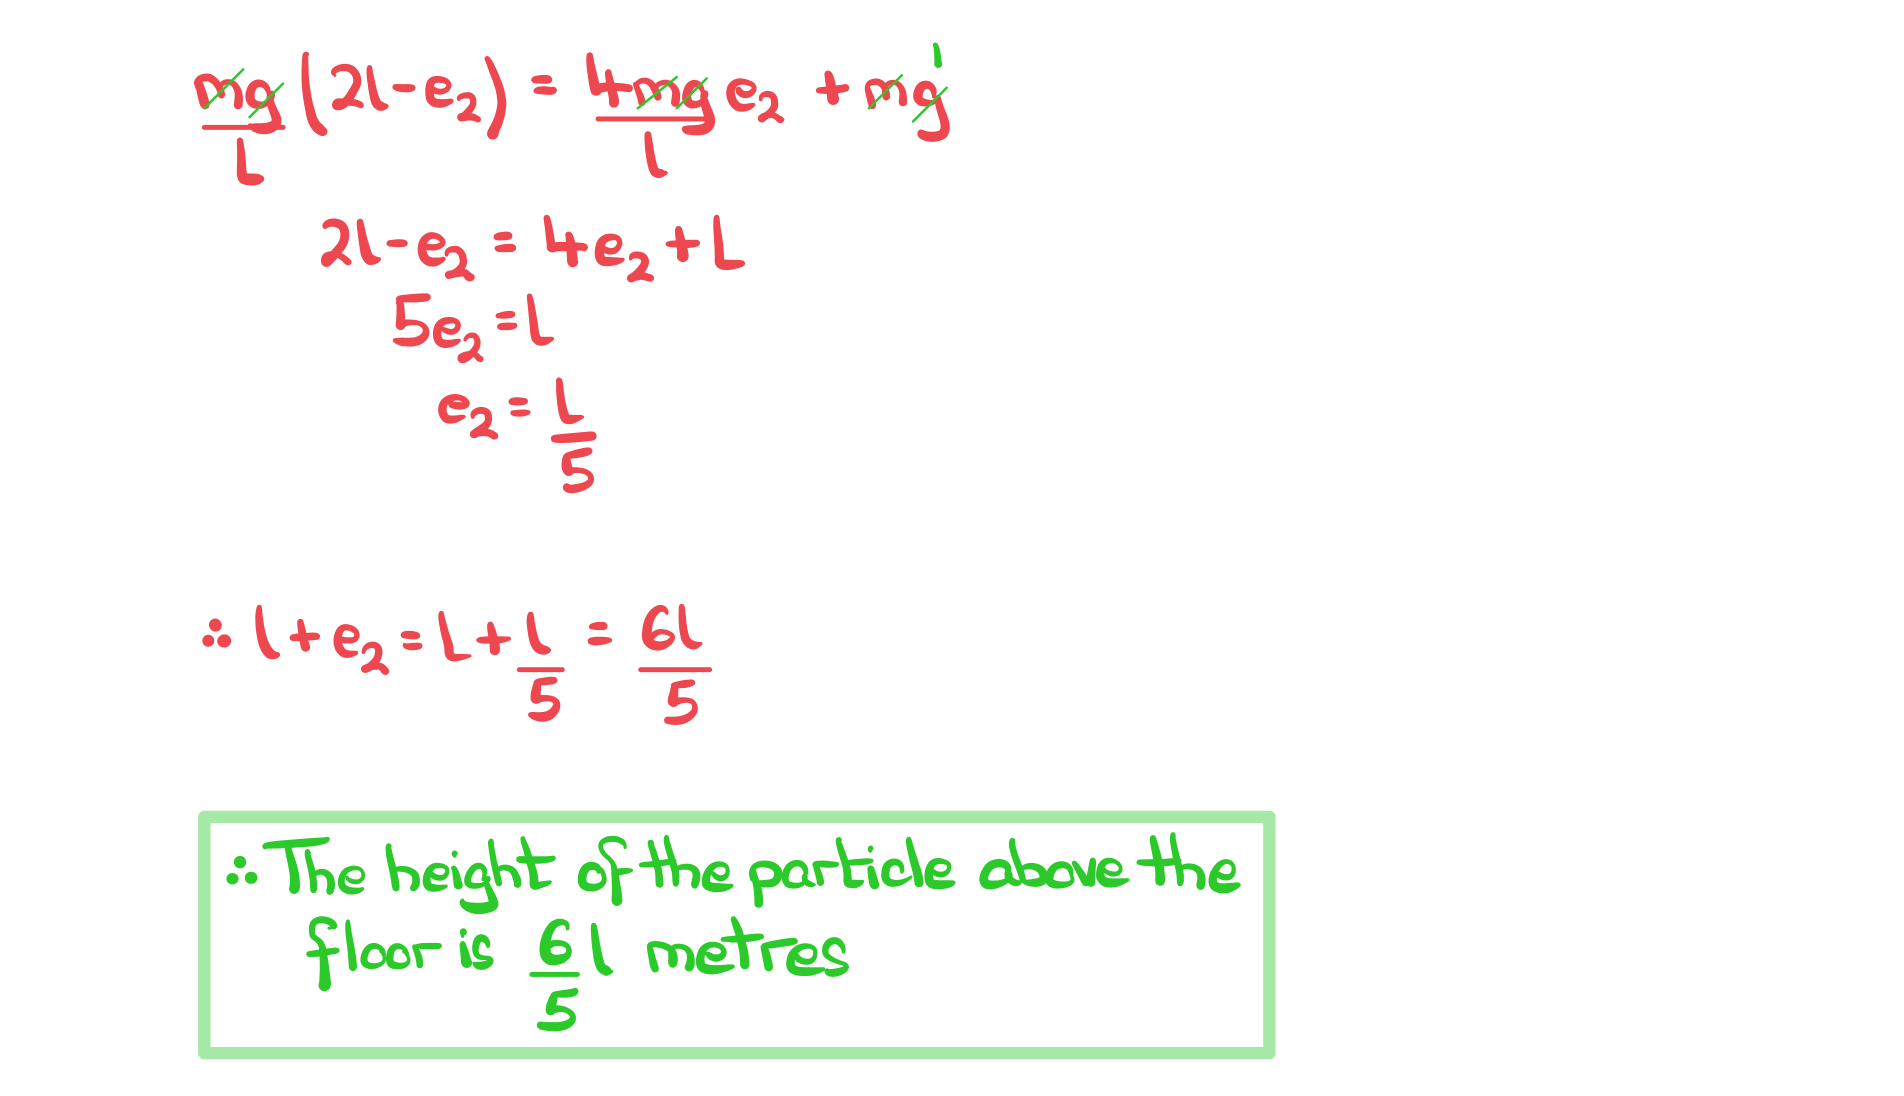 mg/l (2l - e₂) = 4mg/l e₂ + mg 1
2l - e₂ = 4e₂ + l
5e₂ = l
e₂ = l/5
∴ l + e₂ = l + l/5 = 6l/5
∴ The height of the particle above the
floor is 6/5 l metres